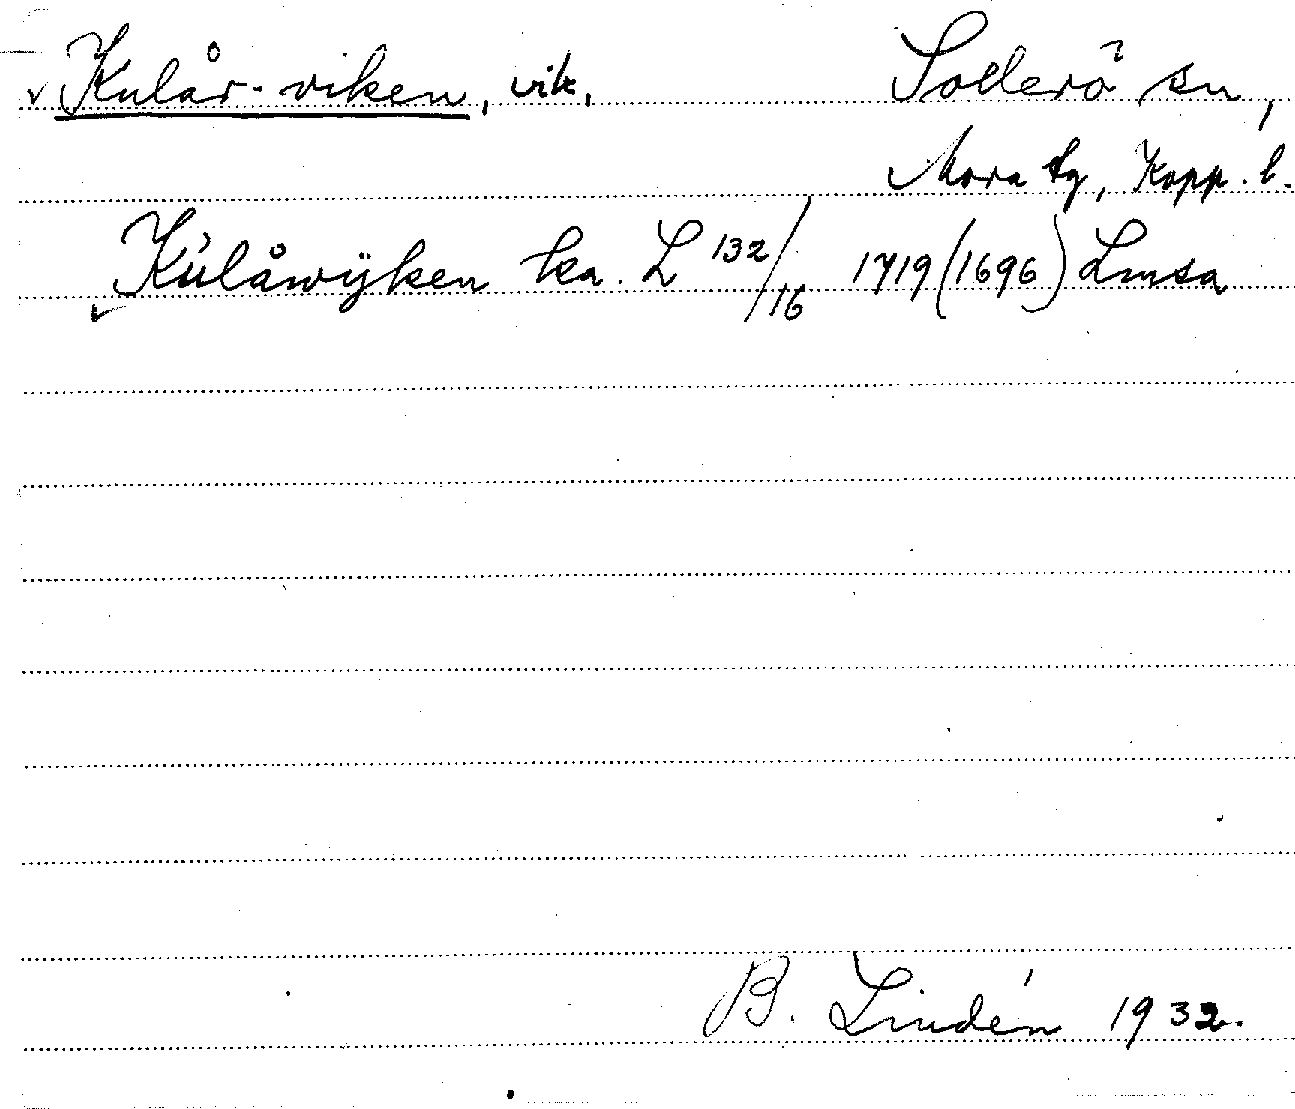 Kulår-viken, vik, Sollerö sn,
Mora tg, Kopp. l.
Kŭlåwÿken ka. L 132/16 1719 (1696) Lmsa
B. Lindén 1932.